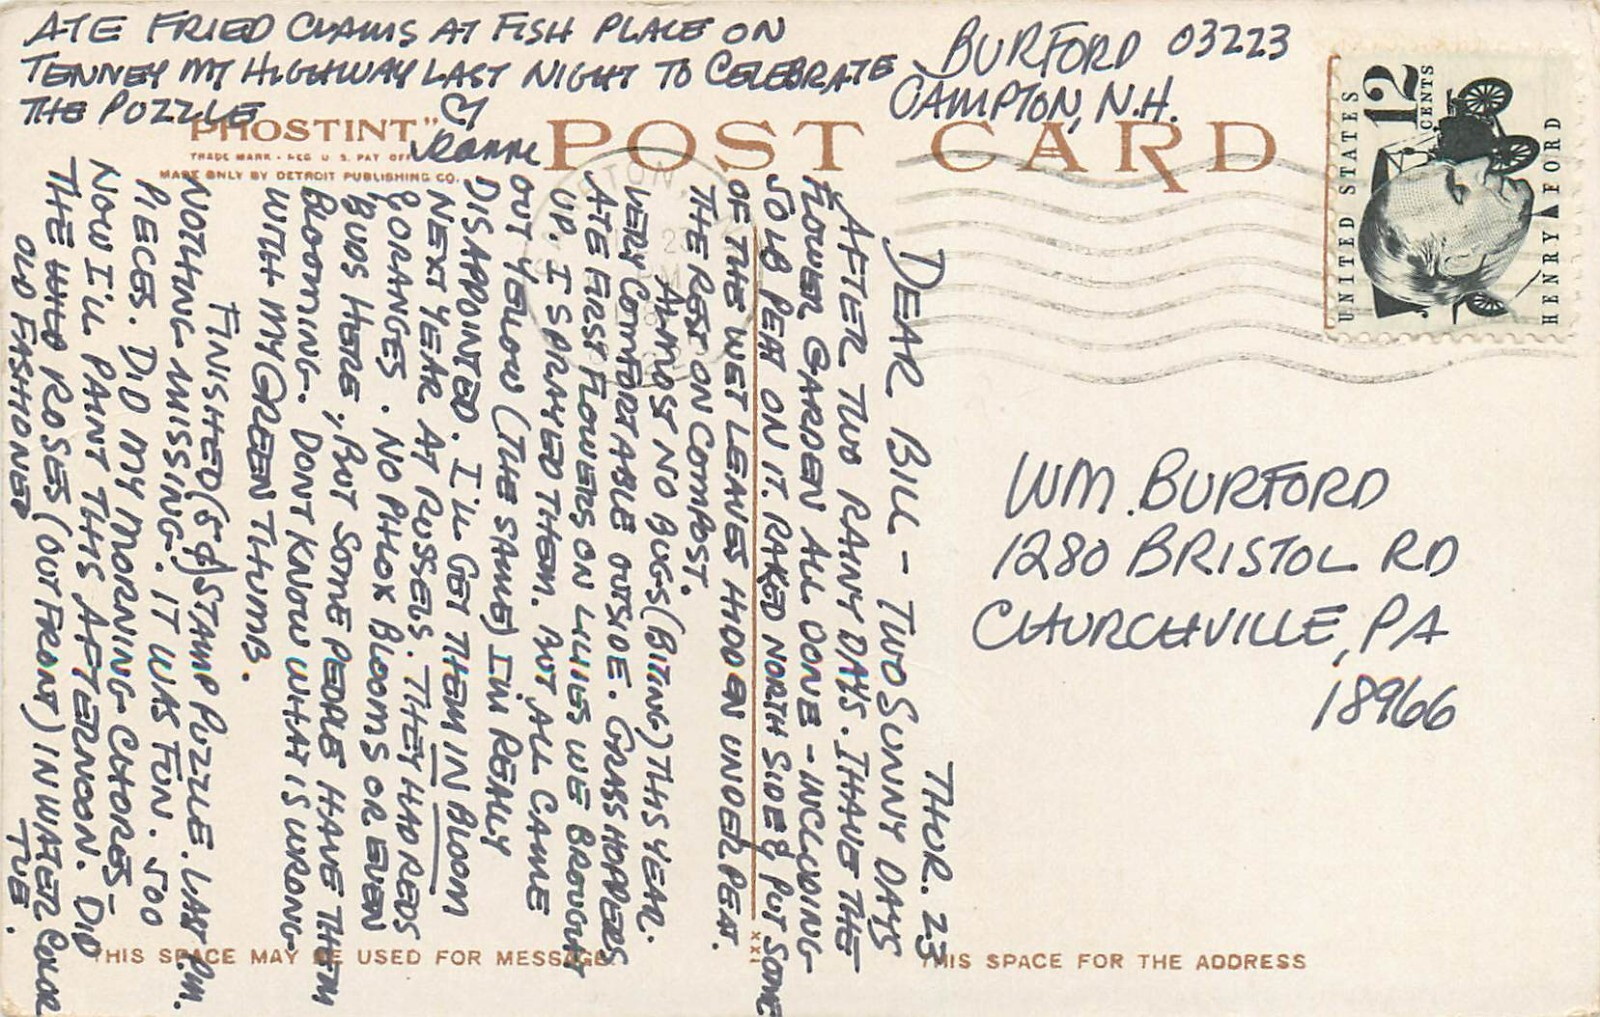 ATE FRIED CLAMS AT FISH PLACE ON
TENNEY MT HIGHWAY LAST NIGHT TO CELEBRATE
THE PUZZLE
Jeanne
BURFORD 03223
CAMPTON, N.H.
UNITED STATES
12 CENTS
HENRY FORD
"PHOSTINT"
TRADE MARK - REG U. S. PAT OFF
MADE ONLY BY DETROIT PUBLISHING CO.
POST CARD
THUR. 23
DEAR BILL - TWO SUNNY DAYS
AFTER TWO RAINY DAYS. I HAVE THE
FLOWER GARDEN ALL DONE - INCLUDING
50 LB PEAT ON IT. RAKED NORTH SIDE & PUT SOME
OF THE WET LEAVES HIDDEN UNDER PEAT.
THE REST ON COMPOST.
ALMOST NO BUGS (BITING) THIS YEAR.
VERY COMFORTABLE OUTSIDE. GRASSHOPPERS
ATE FIRST FLOWERS ON LILIES WE BROUGHT
UP. I SPRAYED THEM. BUT ALL CAME
OUT YELLOW (THE SAME) I'M REALLY
DISAPPOINTED. I'LL GET THEM IN BLOOM
NEXT YEAR AT RUSSELS. THEY HAD REDS
& ORANGES. NO PHLOX BLOOMS OR EVEN
BUDS HERE, BUT SOME PEOPLE HAVE THEM
BLOOMING. DONT KNOW WHAT IS WRONG
WITH MY GREEN THUMB.
FINISHED (5¢) STAMP PUZZLE. LAST P.M.
NOTHING MISSING. IT WAS FUN. 500
PIECES. DID MY MORNING CHORES -
NOW I'LL PAINT THIS AFTERNOON. DID
THE WILD ROSES (OUT FRONT) IN WATER COLOR
OLD FASHIONED TUE.
WM. BURFORD
1280 BRISTOL RD
CHURCHVILLE, PA
18966
THIS SPACE MAY BE USED FOR MESSAGE.
XXI
THIS SPACE FOR THE ADDRESS